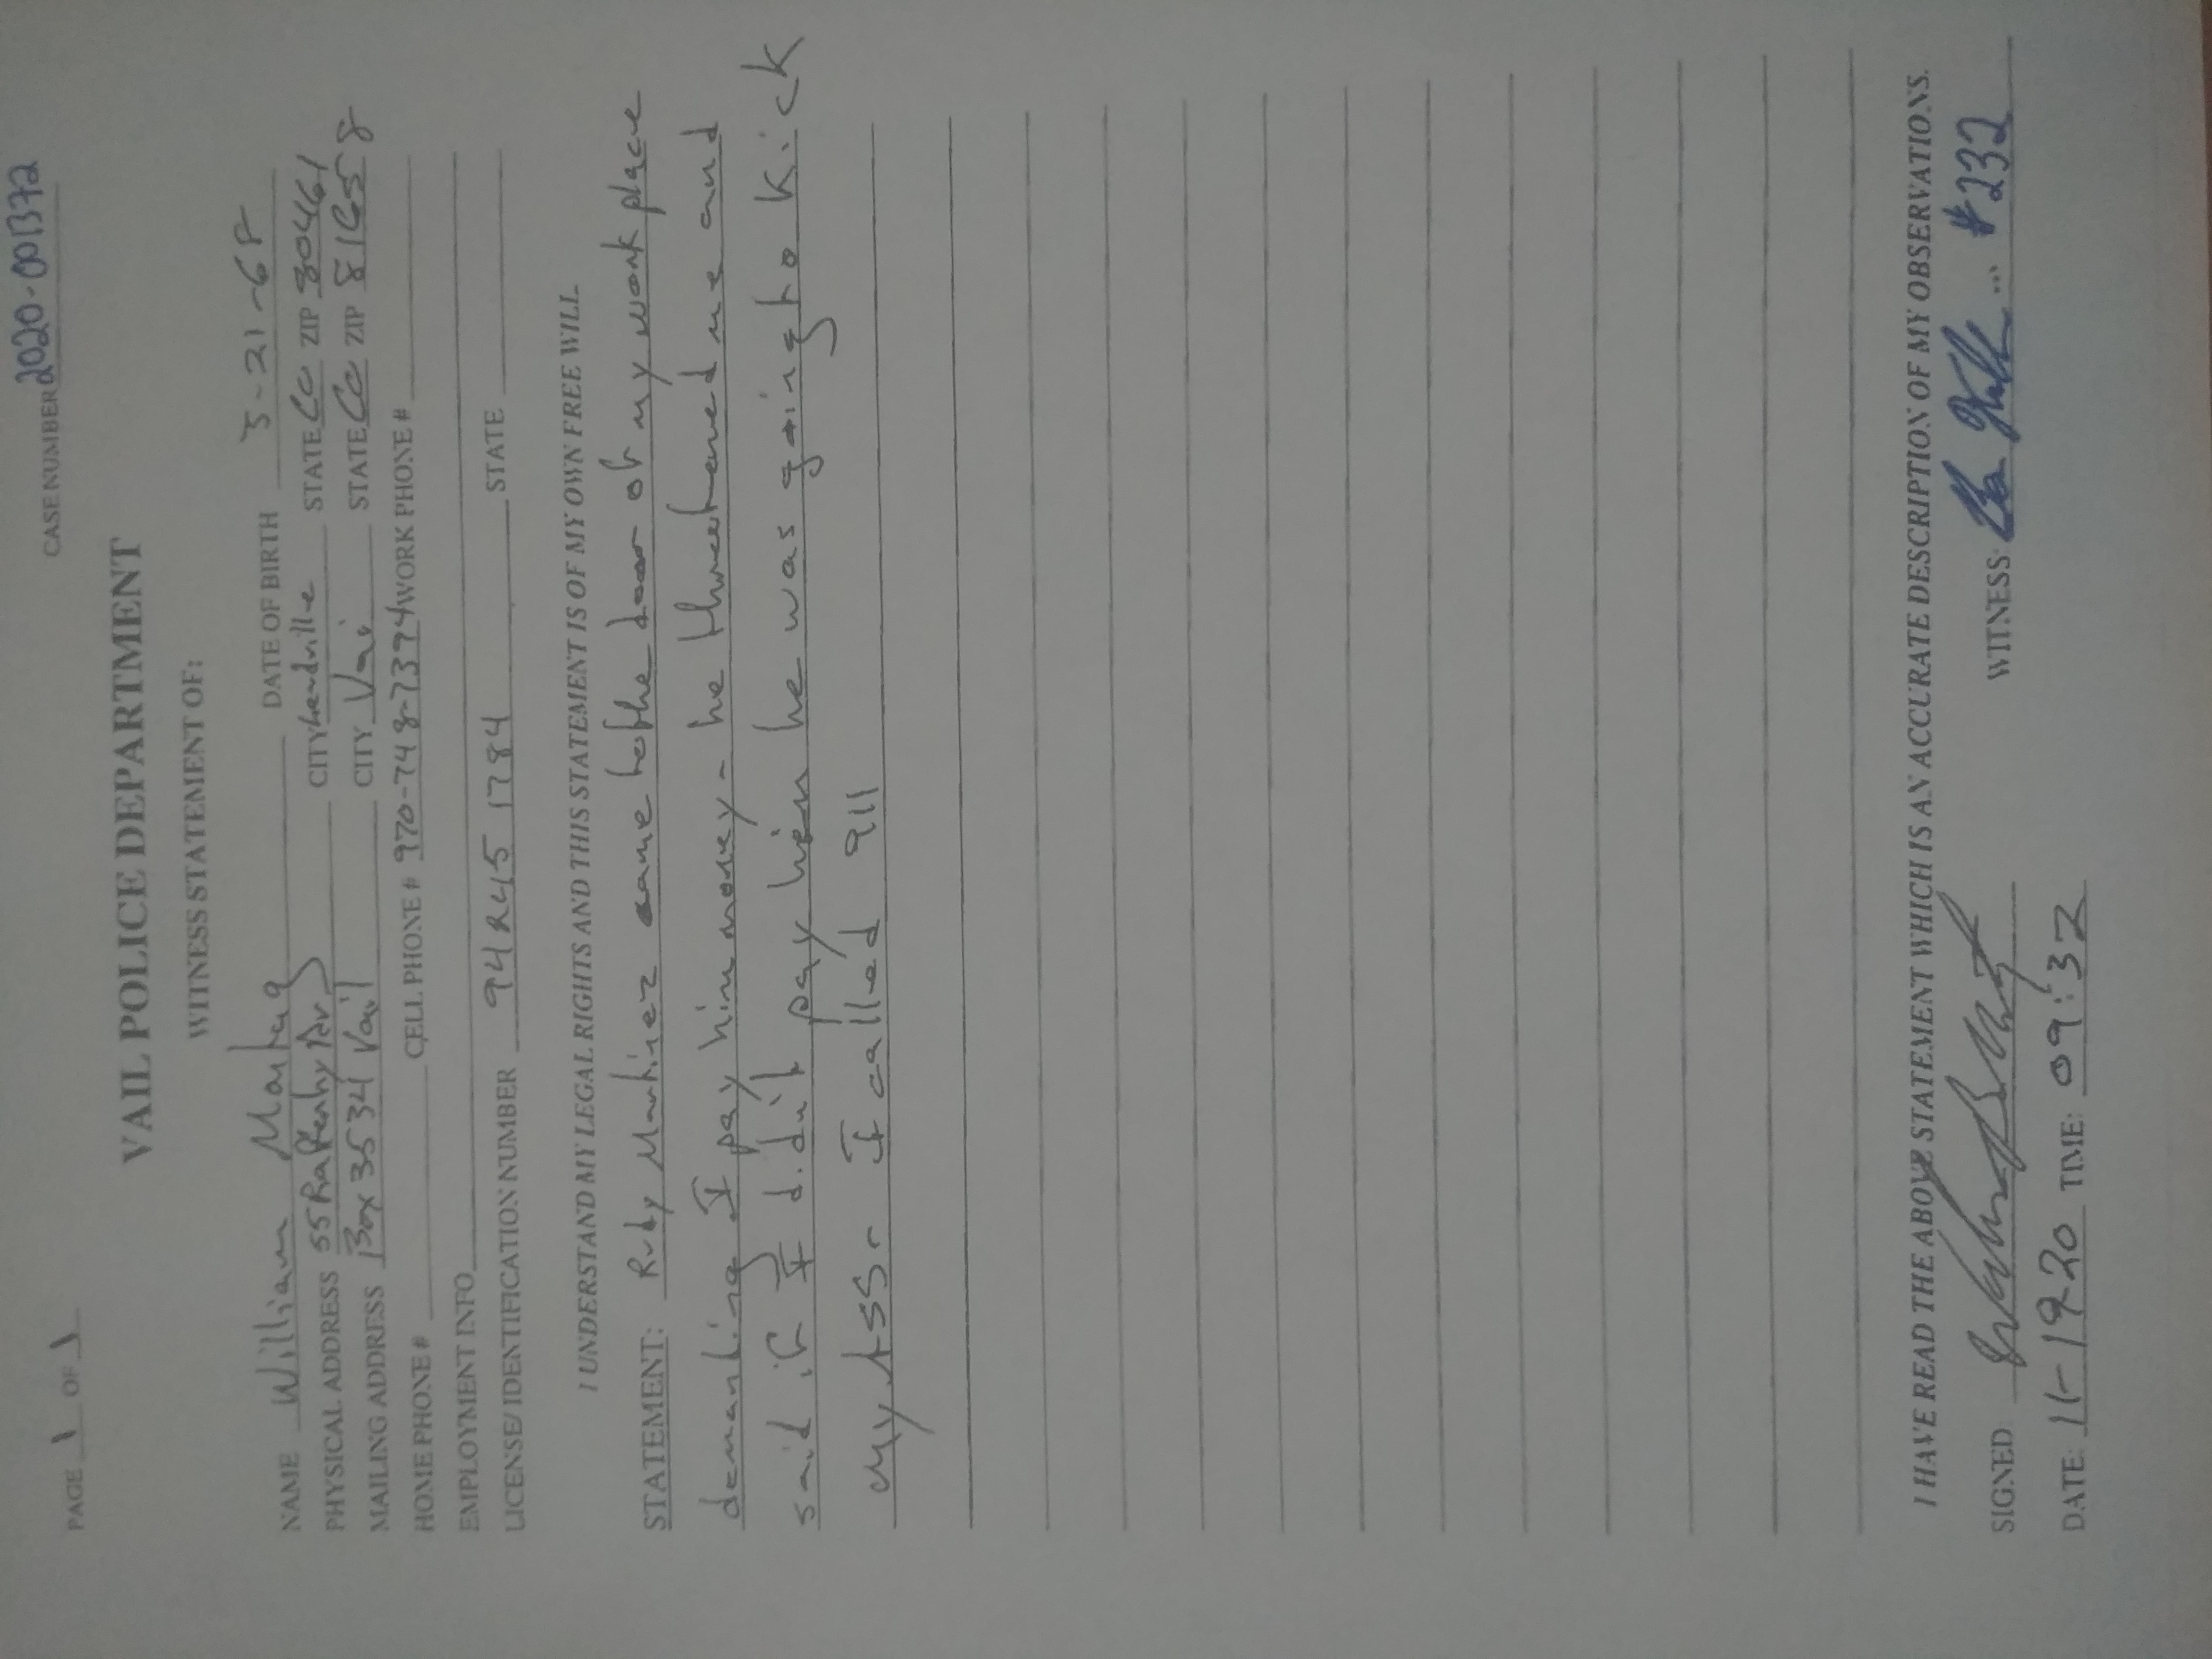 PAGE 1 OF 1
CASE NUMBER 2020-001372
VAIL POLICE DEPARTMENT
WITNESS STATEMENT OF:
NAME William DATE OF BIRTH 5-21-68
PHYSICAL ADDRESS 55 CITY Leadville STATE Co ZIP 80461
MAILING ADDRESS Box 3534 Vail CITY Vai STATE Co ZIP 81658
HOME PHONE # CELL PHONE # 970-748-7394 WORK PHONE #
EMPLOYMENT INFO
LICENSE/IDENTIFICATION NUMBER 942451784 STATE
I UNDERSTAND MY LEGAL RIGHTS AND THIS STATEMENT IS OF MY OWN FREE WILL.
STATEMENT: Rudy Martinez came to the door of my work place
demanting I pay him money - he threatened me and
said if I didn't pay him he was going to Kick
my Ass - I called 911
I HAVE READ THE ABOVE STATEMENT WHICH IS AN ACCURATE DESCRIPTION OF MY OBSERVATIONS.
SIGNED: WITNESS: #232
DATE: 11-1920 TIME: 09:32